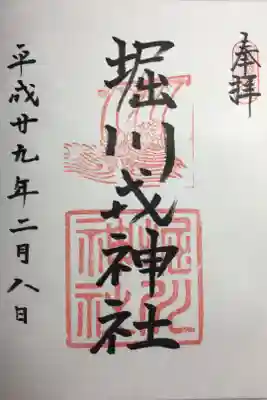 奉拝
堀川戎神社
平成廿九年二月八日
堀川
神社